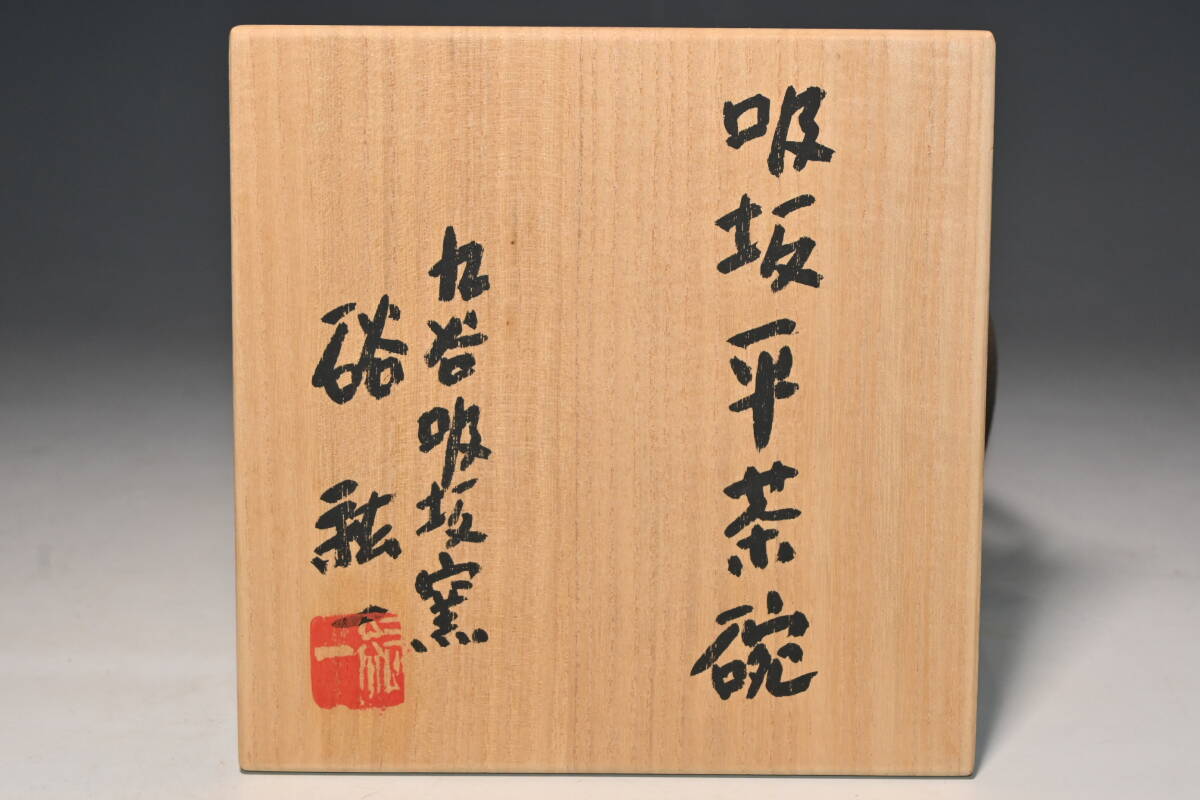 吸坂平茶碗
九谷吸坂窯
硲紘一
紘一